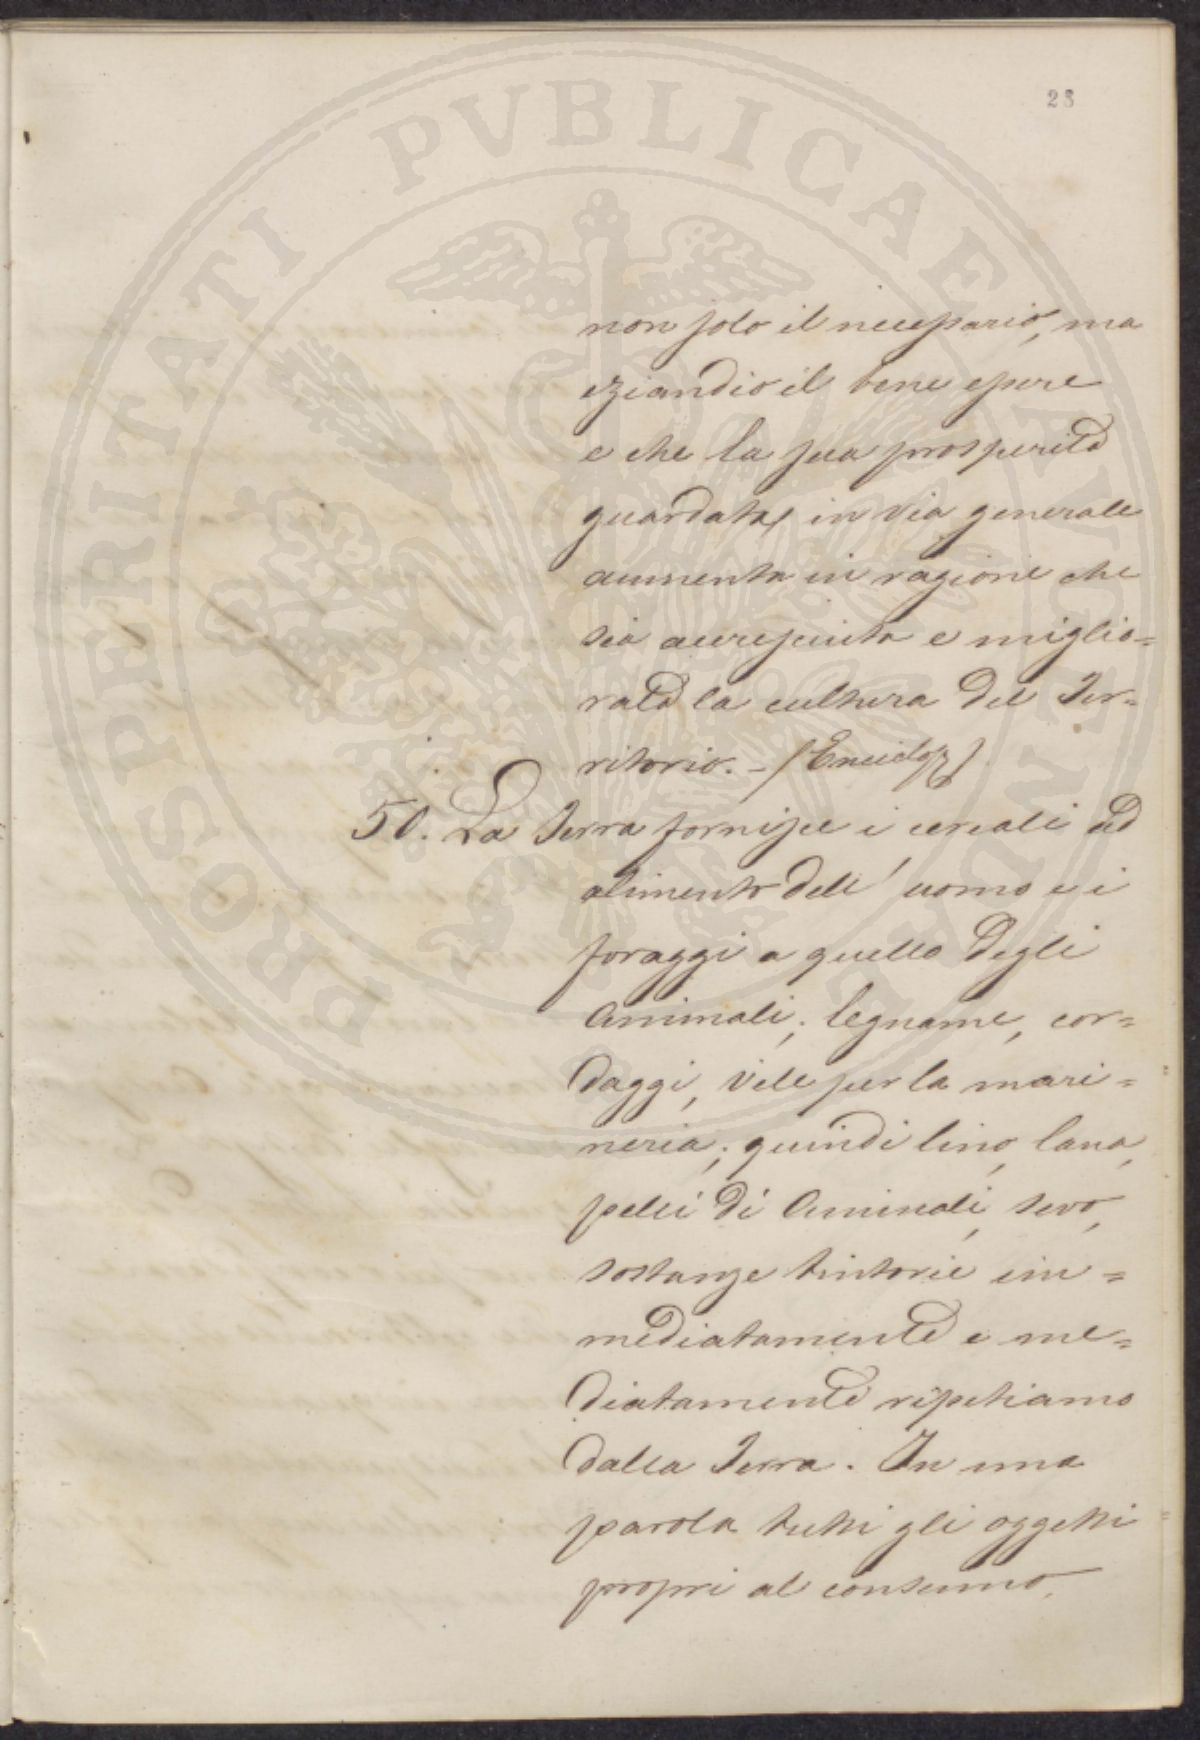 28
PROSPERITATI PVBLICAE AVGENDAE
non solo il necessario, ma
eziandio il bene essere
e che la sua prosperità
guardata in via generale
aumenta in ragione che
sia accresciuta e miglio=
rata la cultura del Ter=
ritorio. - (Enciclop)
50. La Terra fornisce i cereali ad
alimento dell' uomo e i
foraggi a quello degli
Animali; legname, cor=
daggi, vele per la mari=
neria; quindi lino, lana,
pelli di Animali, sevo,
sostanze tintorie im=
mediatamente e me=
diatamente ripetiamo
dalla Terra. In una
parola tutti gli oggetti
propri al consumo.